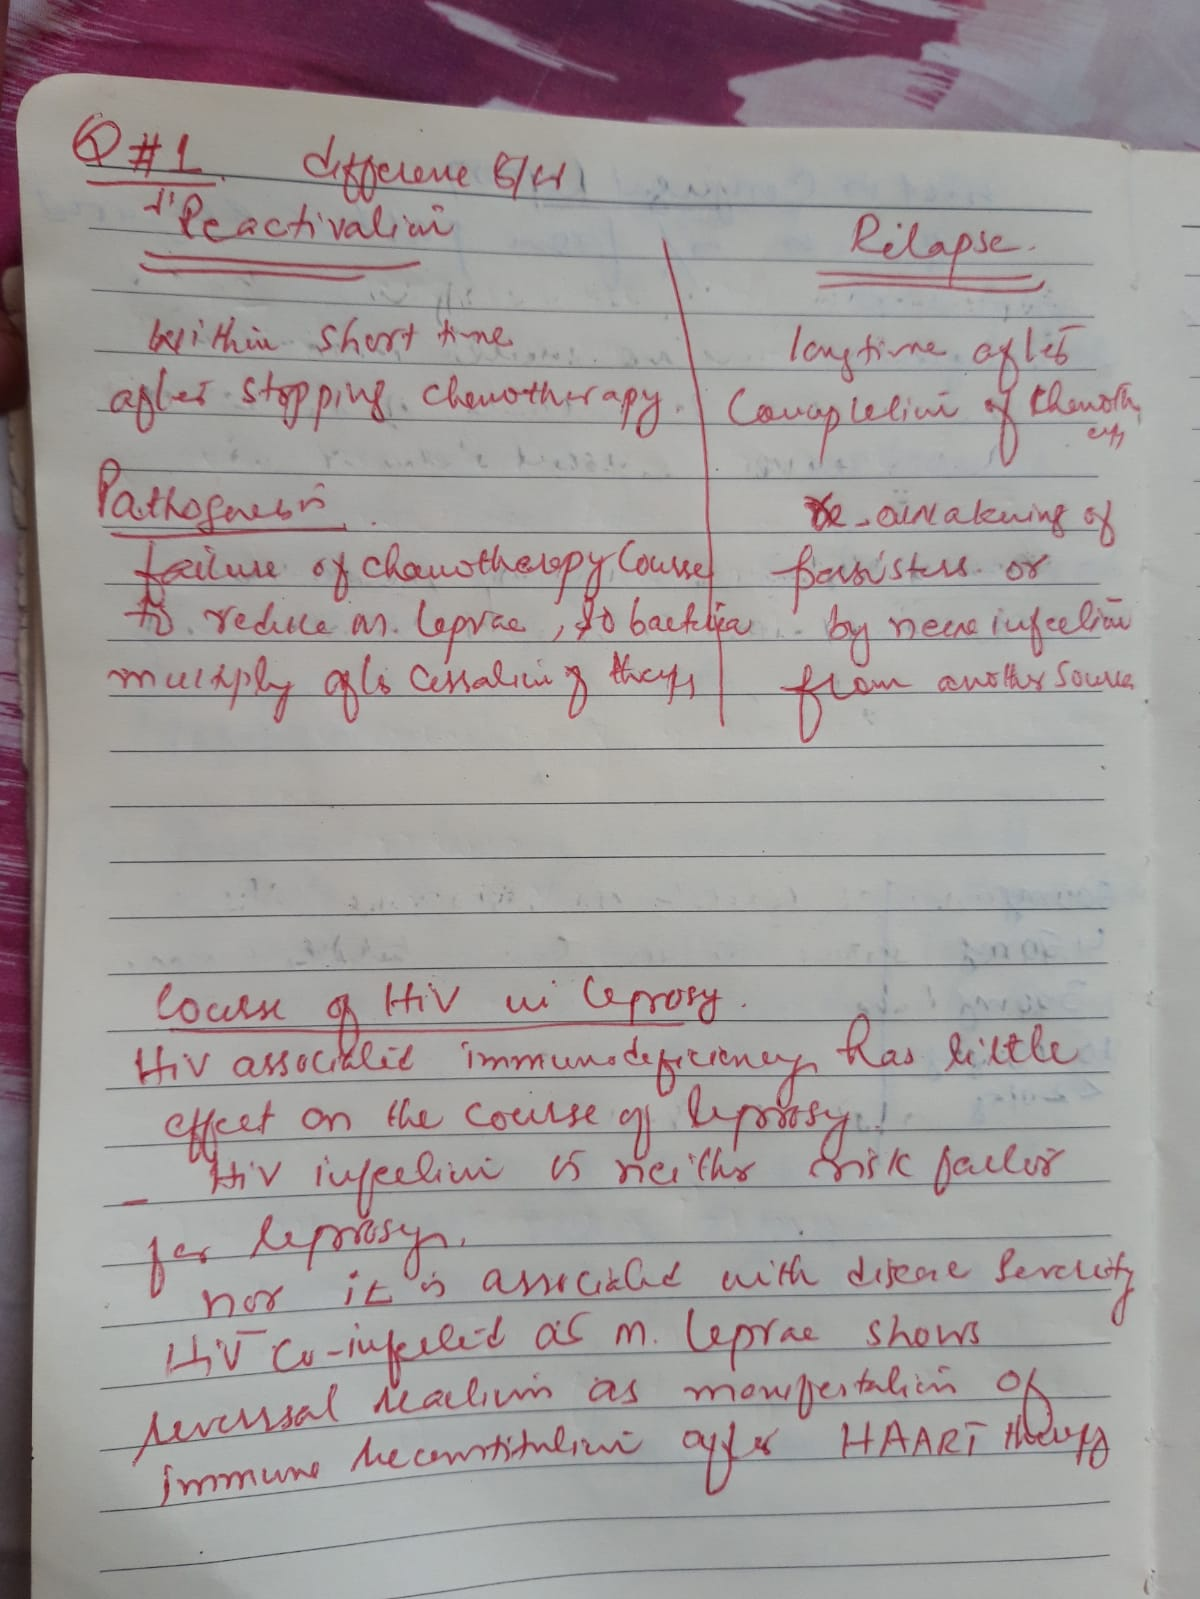 Q#1. difference b/w
Reactivation
Relapse.
within short time
after stopping chemotherapy.
longtime after
Completion of chemoth
erapy
Pathogenesis
failure of chemotherapy Course
to reduce m. leprae, so bacteria
multiply after Cessation of therapy
Re-awakening of
persisters or
by new infection
from another Source
Course of HiV in leprosy.
HiV associated immunodeficiency has little
effect on the course of leprosy.
- HiV infection is neither risk factor
for leprosy.
nor it is associated with disease Severity
HiV Co-infected as m. leprae shows
reverssal reaction as manifestation of
immune reconstitution after HAART therapy